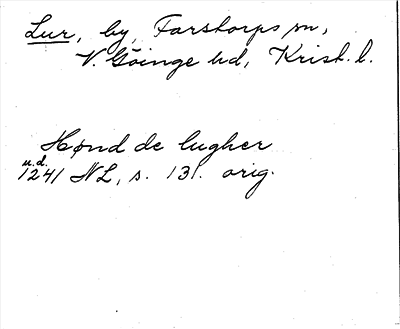 Lur, by, Farstorps sn,
V. Göinge hd, Krist. l.
Hønd de lugher
u.d.
1241 NL, s. 131. orig.